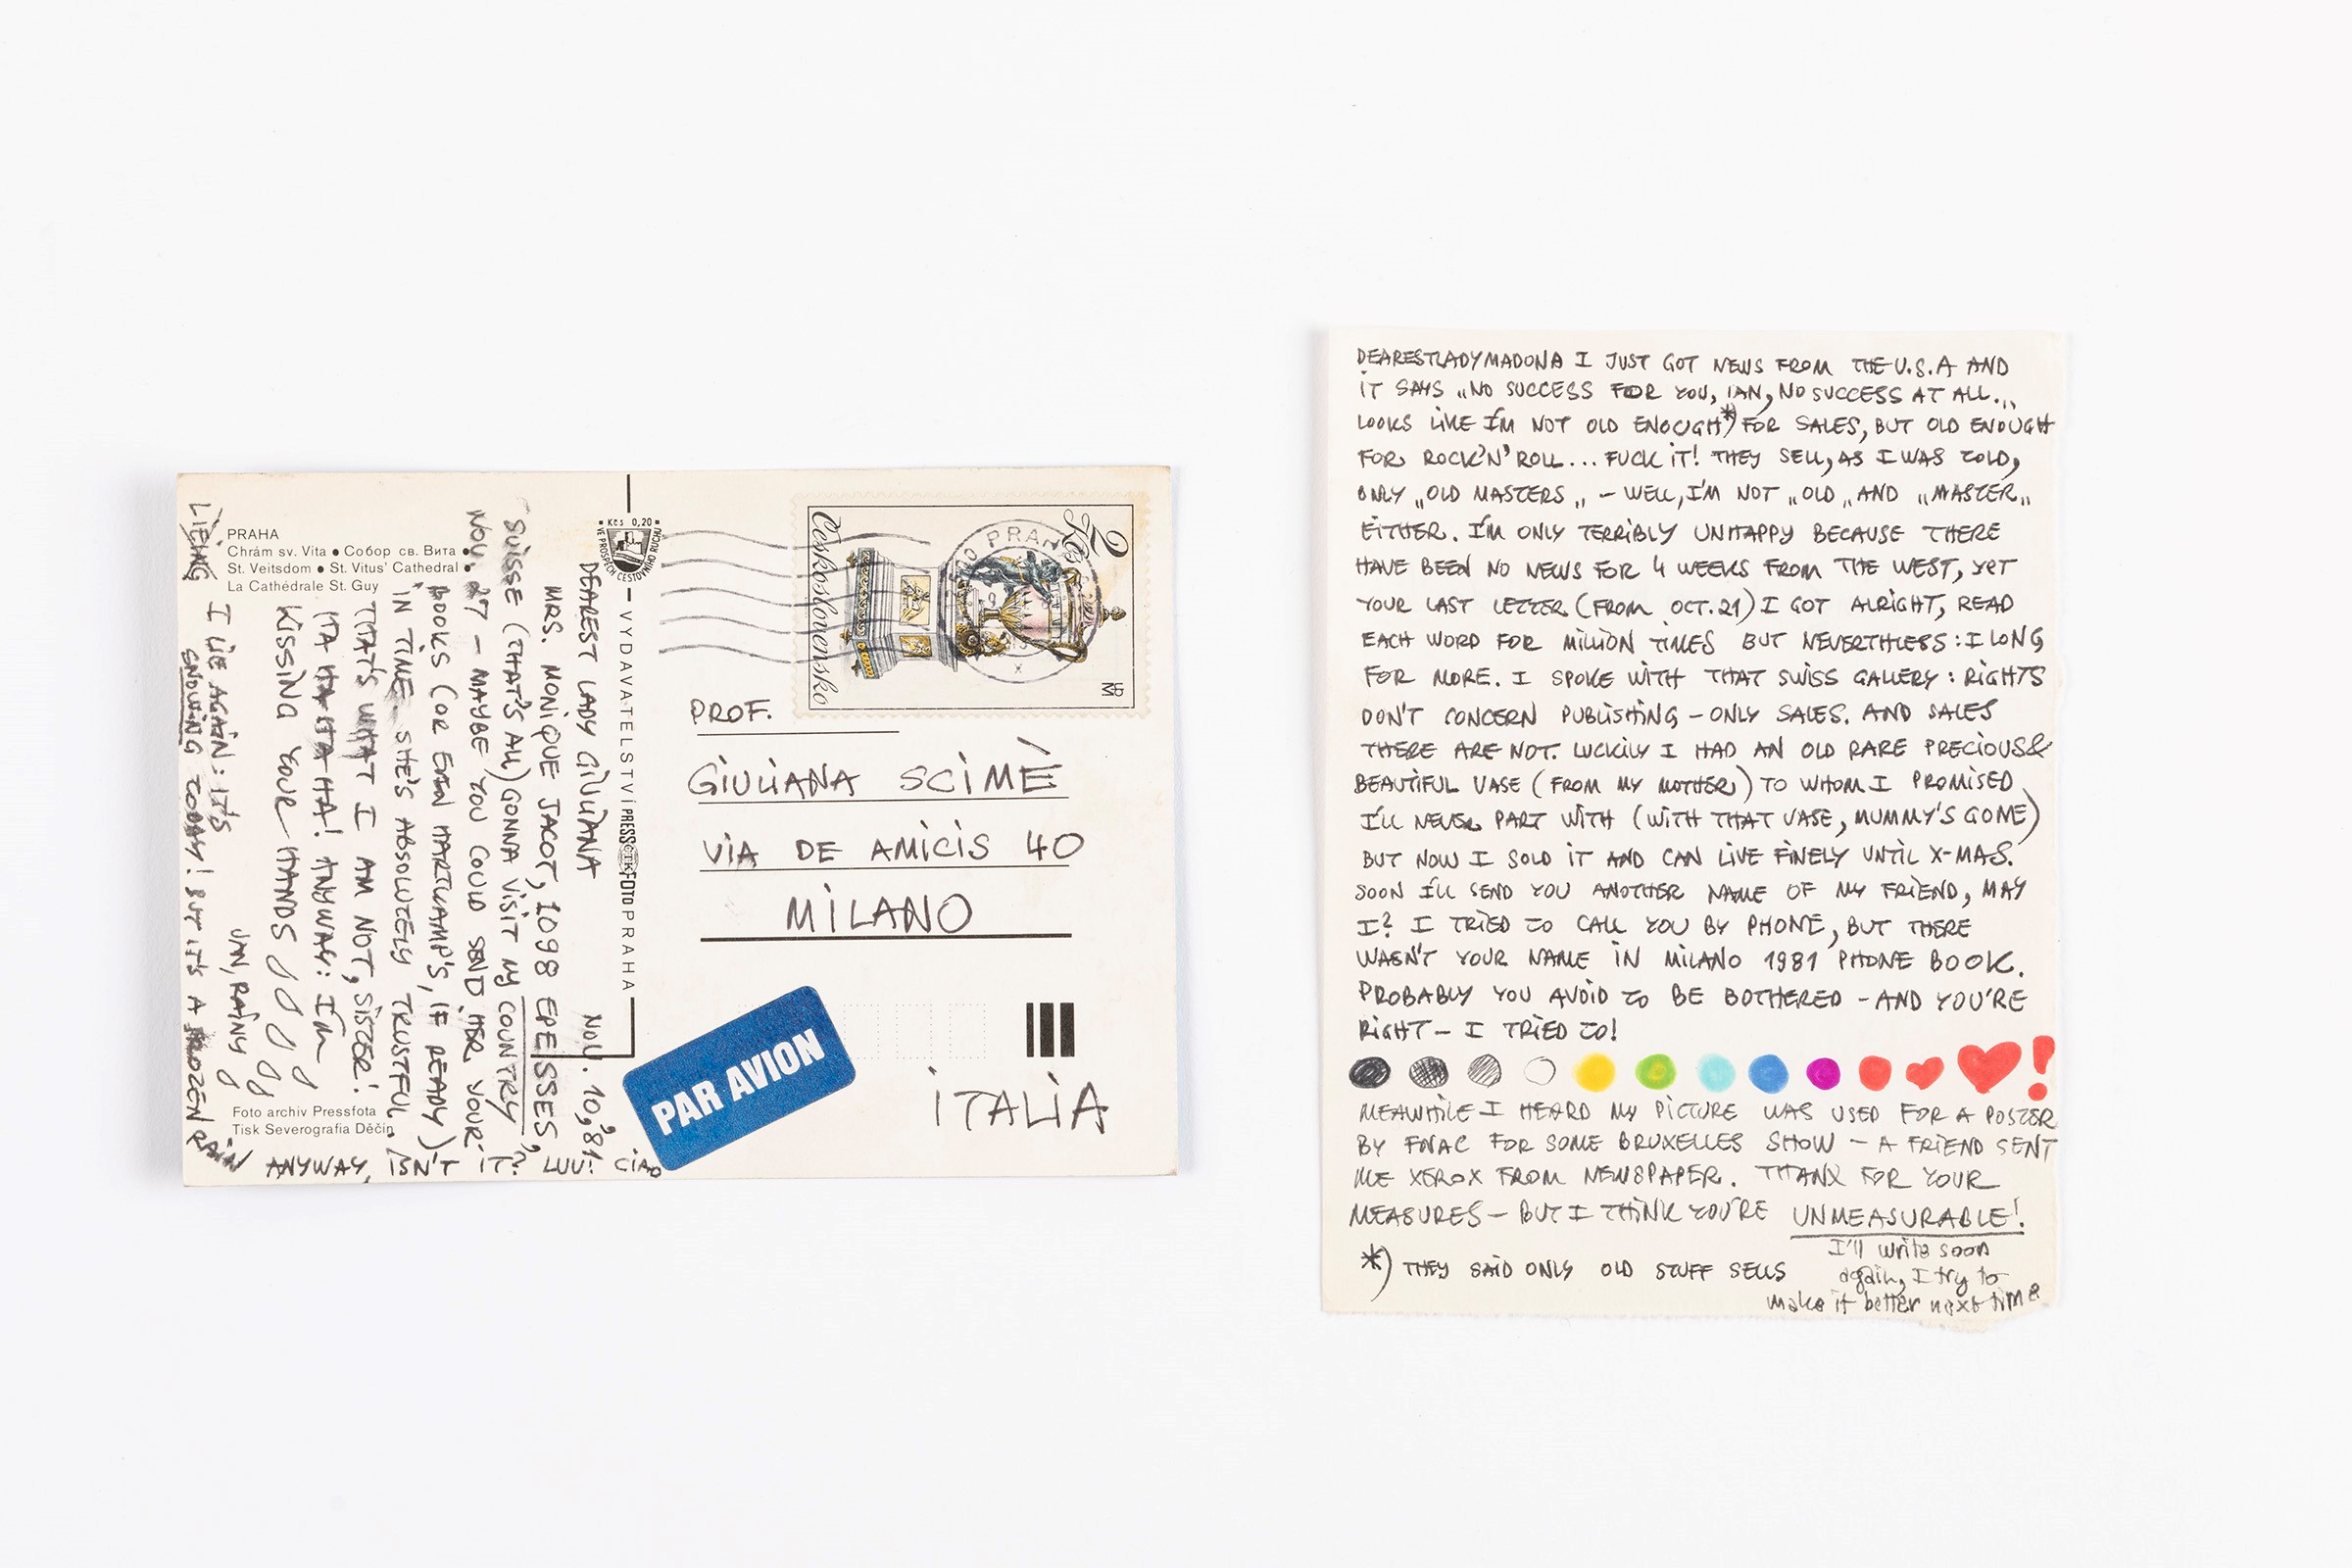 PRAHA
Chrám sv. Víta • Собор св. Вита •
St. Veitsdom • St. Vitus' Cathedral •
La Cathédrale St. Guy
DEAREST LADY GIULIANA NOV. 10, 81
MRS. MONIQUE JACOT, 1098 EPESSES,
SUISSE (THAT'S ALL) GONNA VISIT MY COUNTRY
NOV 27 – MAYBE YOU COULD SEND HER YOUR
BOOKS (OR EVEN HARTKAMP'S, IF READY)
IN TIME. SHE'S ABSOLUTELY TRUSTFUL.
THAT'S WHAT I AM NOT, SISTER!
HA HA HA HA! ANYWAY: I'M
KISSING YOUR HANDS
JAN, RAINY
I LIE AGAIN: IT'S
SNOWING TODAY! BUT IT'S A FROZEN RAIN
LIEING
ANYWAY, ISN'T IT? LUV! CIAO
Foto archiv Pressfota
Tisk Severografia Děčín
Kčs 0,20
VE PROSPĚCH CESTOVNÍHO RUCHU
VYDAVATELSTVÍ PRESSFOTO PRAHA
ČTK
Československo
2 Kčs
PRAHA
PROF.
GIULIANA SCIMÈ
VIA DE AMICIS 40
MILANO
ITALIA
PAR AVION
DEARESTLADYMADONA I JUST GOT NEWS FROM THE U.S.A AND
IT SAYS „NO SUCCESS FOR YOU, IAN, NO SUCCESS AT ALL...„
LOOKS LIKE I'M NOT OLD ENOUGH*) FOR SALES, BUT OLD ENOUGH
FOR ROCK'N'ROLL... FUCK IT! THEY SELL, AS I WAS TOLD,
ONLY „OLD MASTERS„ – WELL, I'M NOT „OLD„ AND „MASTER„
EITHER. I'M ONLY TERRIBLY UNHAPPY BECAUSE THERE
HAVE BEEN NO NEWS FOR 4 WEEKS FROM THE WEST, YET
YOUR LAST LETTER (FROM OCT. 21) I GOT ALRIGHT, READ
EACH WORD FOR MILLION TIMES BUT NEVERTHLESS: I LONG
FOR MORE. I SPOKE WITH THAT SWISS GALLERY: RIGHTS
DON'T CONCERN PUBLISHING – ONLY SALES. AND SALES
THERE ARE NOT. LUCKILY I HAD AN OLD RARE PRECIOUS&
BEAUTIFUL VASE (FROM MY MOTHER) TO WHOM I PROMISED
I'LL NEVER PART WITH (WITH THAT VASE, MUMMY'S GONE)
BUT NOW I SOLD IT AND CAN LIVE FINELY UNTIL X-MAS.
SOON I'LL SEND YOU ANOTHER NAME OF MY FRIEND, MAY
I? I TRIED TO CALL YOU BY PHONE, BUT THERE
WASN'T YOUR NAME IN MILANO 1981 PHONE BOOK.
PROBABLY YOU AVOID TO BE BOTHERED – AND YOU'RE
RIGHT – I TRIED TO!
MEAWHILE I HEARD MY PICTURE WAS USED FOR A POSTER
BY FNAC FOR SOME BRUXELLES SHOW – A FRIEND SENT
ME XEROX FROM NEWSPAPER. THANX FOR YOUR
MEASURES – BUT I THINK YOU'RE UNMEASURABLE!
I'll write soon
again, I try to
make it better next time
*) THEY SAID ONLY OLD STUFF SELLS